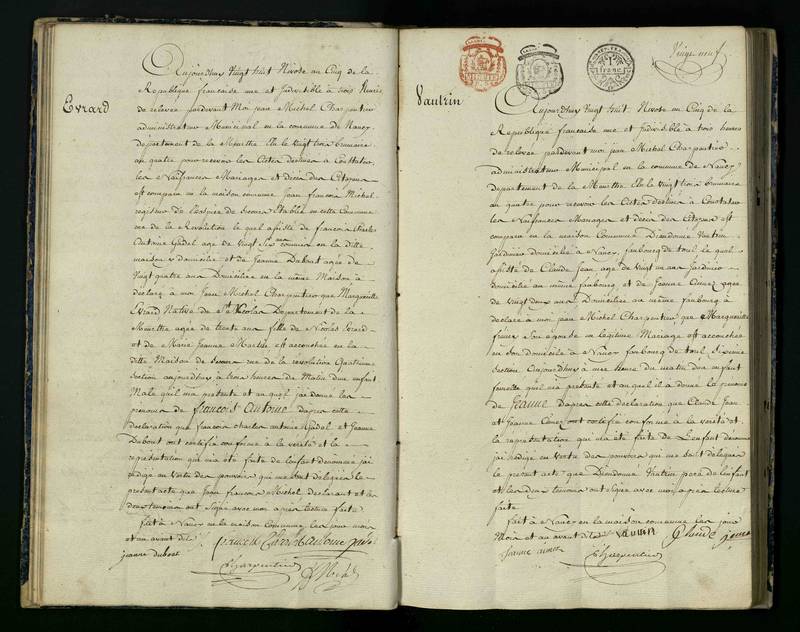 Evrard
Aujourdhuy Vingt huit Nivose an Cinq de la
République francaise une et Indivisible à trois heures
de relevée pardevant Moi jean Michel Charpentier
administrateur Municipal en la commune de Nancy
département de la Meurthe Elu le vingt trois brumaire
an quatre pour recevoir les Actes destinés à Constater
les Naissances Mariages et décès des Citoyens
est comparu en la maison commune Jean francois Michel
regisseur de l'hospice de secours Établie en cette Commune
rue de la Révolution le quel assisté de francois charles
Antoine Gadel agé de Vingt Six ans commis en la ditte
maison y domicilié et de Jeanne Dubout agée de
Vingt quatre ans Domiciliée en la même Maison à
déclaré à moi Jean Michel Charpentier que Marguerite
Evrard Native de St Nicolas Département de la
Meurthe agée de trente ans fille de Nicolas Evrard
et de Marie Jeanne est accouchée en la
ditte Maison de secours rue de la revolution Quatrieme
section aujourdhuy à trois heures du Matin d'un enfant
Male qu'il m'a présenté et au quel j'ai donné les
prenoms de francois Antoine d'apres cette
déclaration que francois charles antoine Gadel et Jeanne
Dubout ont certifié conforme à la verité et la
représentation qui m'a été faite de l'enfant dénommé j'ai
rédigé en Vertu des pouvoirs qui me sont délégués le
présent acte que Jean francois Michel déclarant et les
deux temoins ont signé avec moi apres lecture faite
fait à Nancy en la maison commune les jour mois
et an avant dits
jeanne dubout
Charpentier
Vingt neuf
Vautrin
Aujourdhuy Vingt huit Nivose an Cinq de la
République francaise une et Indivisible à trois heures
de relevée pardevant moi jean Michel Charpentier
administrateur Municipal en la commune de Nancy
Département de la Meurthe Elu le vingt trois brumaire
an quatre pour recevoir les Actes destinés à Constater
les Naissances Mariages et décès des Citoyens est
comparu en la maison Commune Dieudonné Vautrin
Jardinier domicilié à Nancy faubourg de toul le quel
assisté de Claude Jean agé de Vingt un ans Jardinier
domicilié au même faubourg et de Jeanne agée
de Vingt deux ans Domiciliée au même faubourg à
déclaré à moi jean Michel Charpentier que Marguerite
son épouse en légitime Mariage est accouchée
en son domicile à Nancy faubourg de toul
section Aujourdhuy à une heure du matin d'un enfant
femelle qu'il m'a présenté et au quel il a donné le prenom
de Jeanne D'apres cette déclaration que Claude Jean
et Jeanne ont certifié conforme à la verité et
la représentation qui m'a été faite de L'enfant dénommé
j'ai rédigé en vertu des pouvoirs qui me sont délégués
le présent acte que Dieudonné Vautrin pere de l'enfant
et les deux temoins ont signé avec moi apres lecture
faite
fait à Nancy en la maison commune les jour
Mois et an avant dits Vautrin
Charpentier